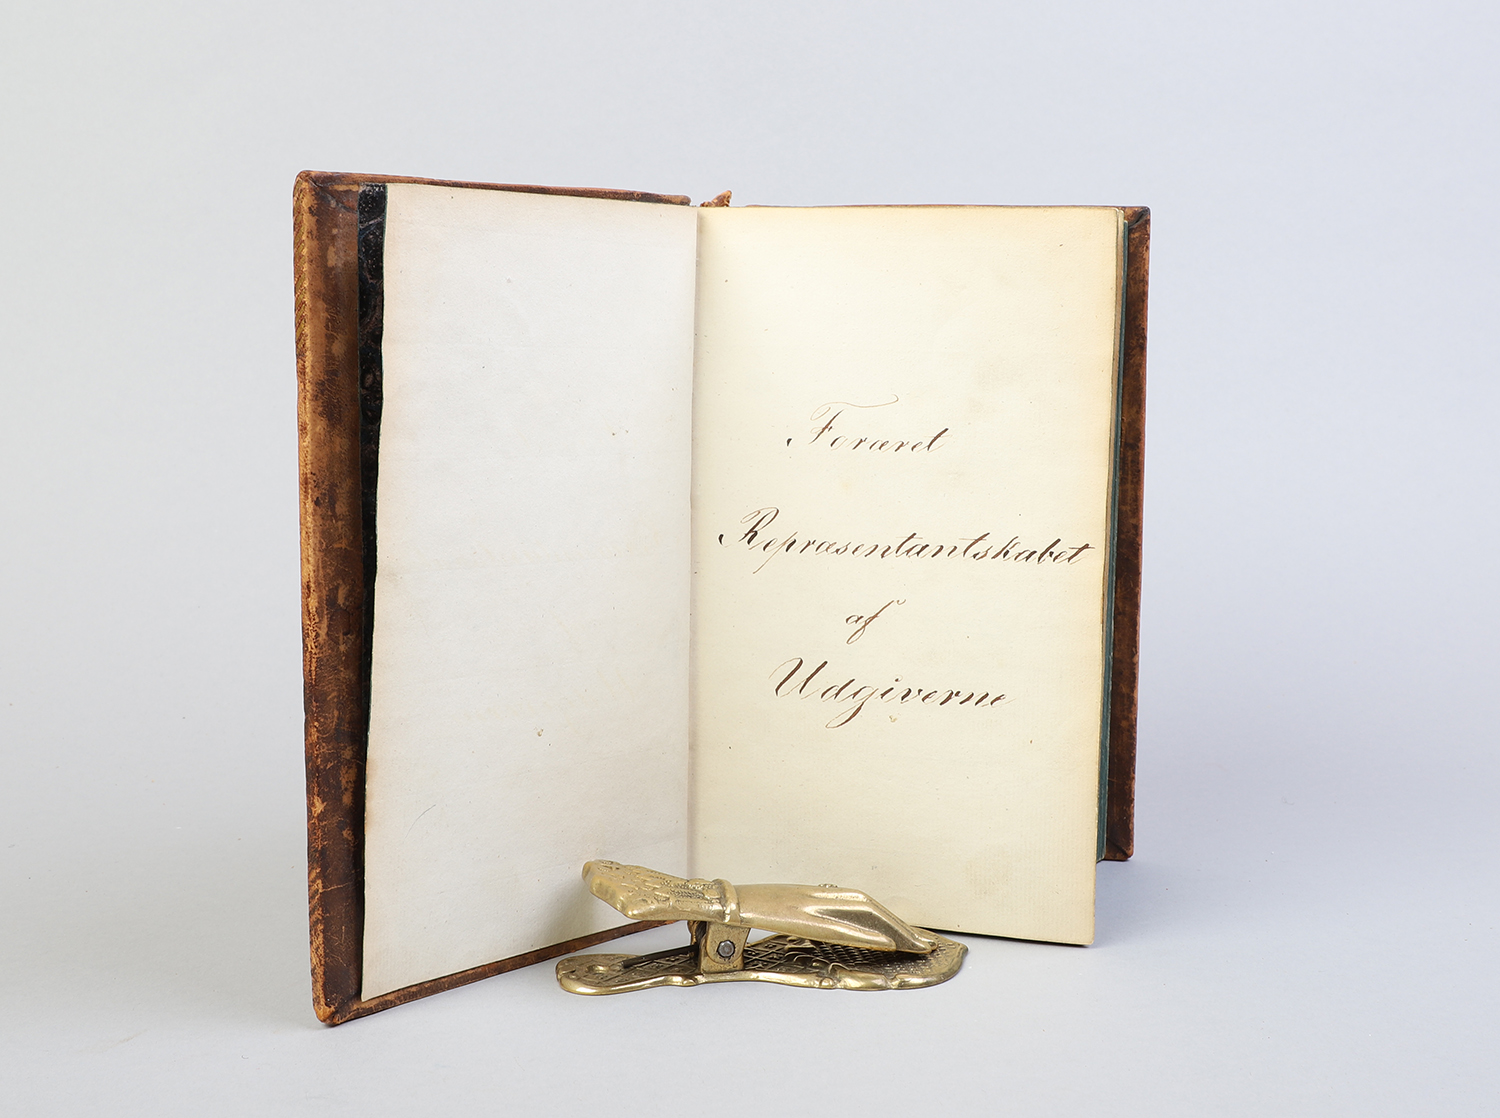 Foræret
Repræsentantskabet
af
Udgiverne